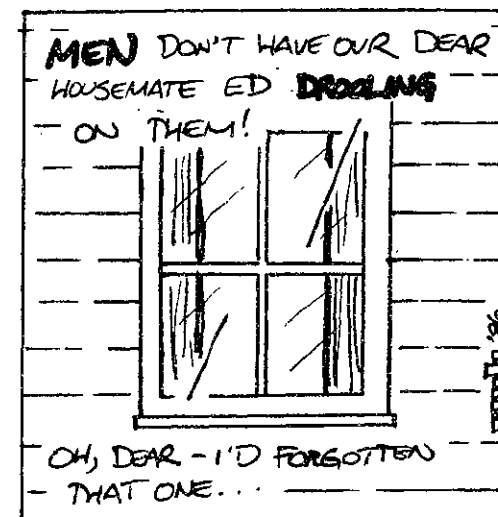 MEN DON'T HAVE OUR DEAR
HOUSEMATE ED DROOLING
ON THEM!
OH, DEAR - I'D FORGOTTEN
THAT ONE...
'86